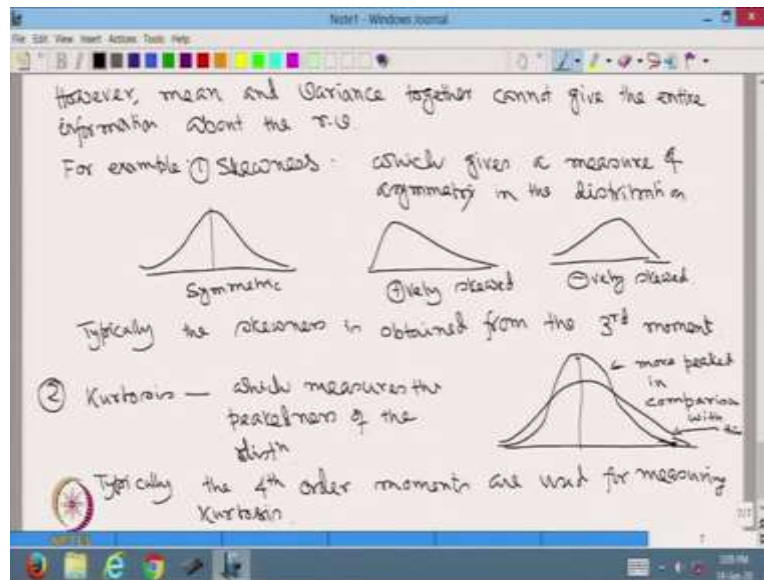 Note1 - Windows Journal
File Edit View Insert Actions Tools Help
However, mean and Variance together cannot give the entire
information about the r.v.
For example: ① Skewness - which gives a measure of
asymmetry in the distribution
Symmetric
⊕vely skewed
⊖vely skewed
Typically the skewness is obtained from the 3rd moment
② Kurtosis — which measures the
peakedness of the
distn
← more peaked
in
comparison
with
Typically the 4th order moments are used for measuring
Kurtosis
NPTEL
7/7